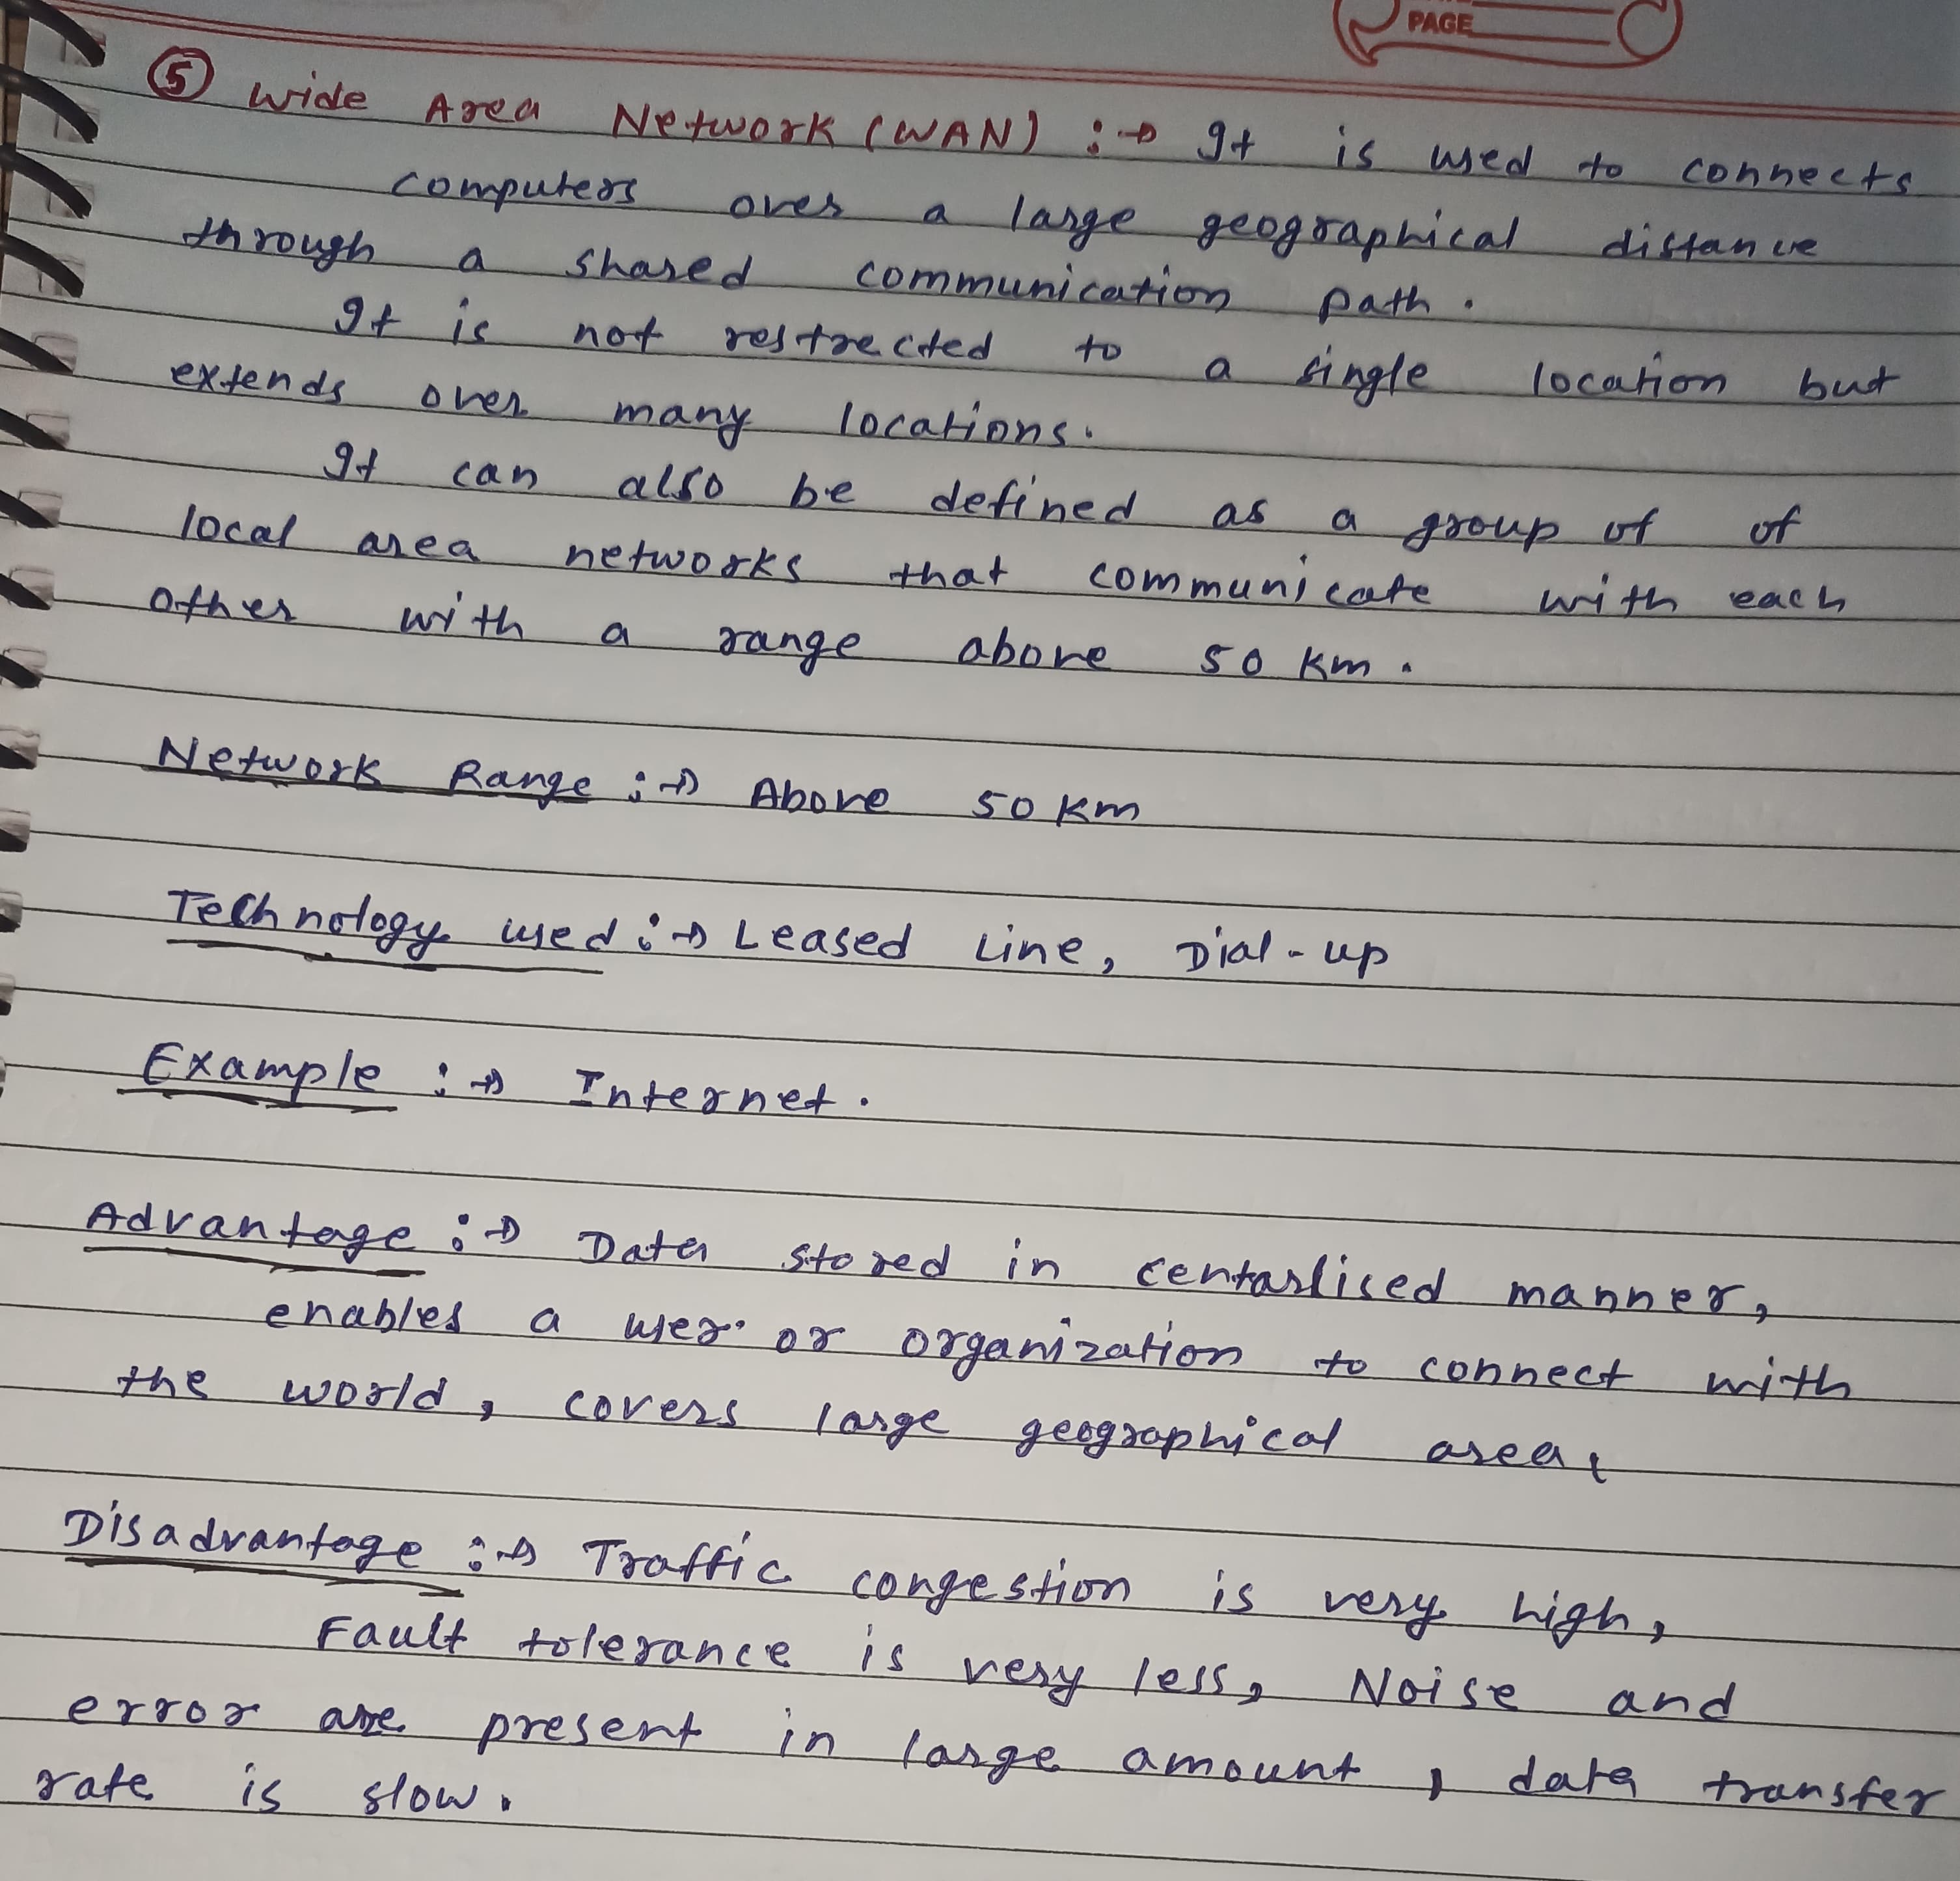 PAGE
⑤ Wide Area Network (WAN) :→ It is used to connects
computers over a large geographical distance
through a shared communication path.
It is not restrected to a single location but
extends over many locations.
It can also be defined as a group of of
local area networks that communicate with each
other with a range above 50 Km.
Network Range :→ Above 50 Km
Technology used :→ Leased Line, Dial-up
Example :→ Internet.
Advantage :→ Data stored in centarlised manner,
enables a user or organization to connect with
the world, covers large geographical area.
Disadvantage :→ Traffic congestion is very high,
Fault tolerance is very less, Noise and
error are present in large amount, data transfer
rate is slow.